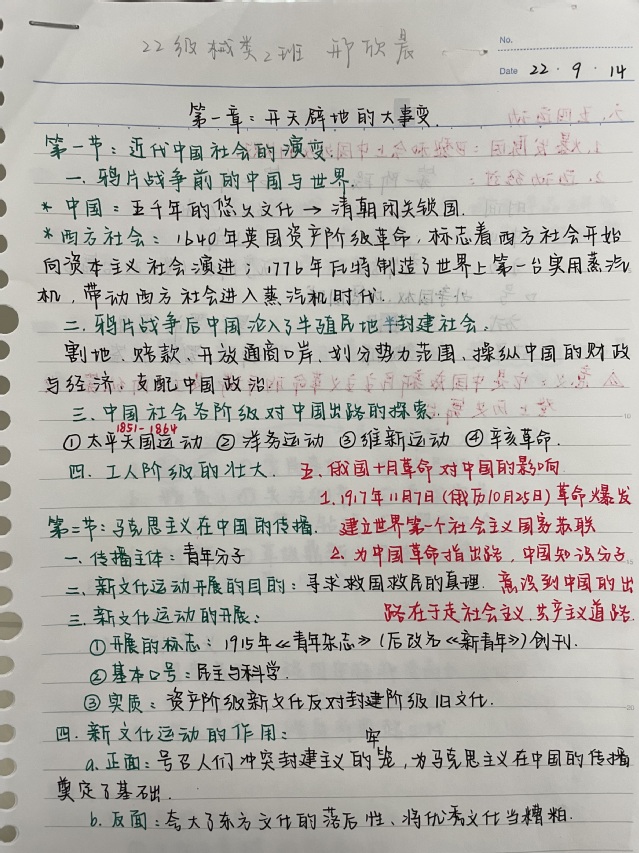 22级械类2班 邢欣晨
No.
Date 22 · 9 · 14
第一章：开天辟地的大事变.
第一节：近代中国社会的演变.
一、鸦片战争前的中国与世界.
* 中国：五千年的悠久文化 → 清朝闭关锁国.
* 西方社会：1640年英国资产阶级革命，标志着西方社会开始
向资本主义社会演进；1776年瓦特制造了世界上第一台实用蒸汽
机，带动西方社会进入蒸汽机时代.
二、鸦片战争后中国沦入了半殖民地半封建社会.
割地、赔款、开放通商口岸、划分势力范围、操纵中国的财政
与经济、支配中国政治
三、中国社会各阶级对中国出路的探索.
1851-1864
① 太平天国运动 ② 洋务运动 ③ 维新运动 ④ 辛亥革命.
四、工人阶级的壮大. 五、俄国十月革命对中国的影响
1.1917年11月7日(俄历10月25日)革命爆发
第二节：马克思主义在中国的传播. 建立世界第一个社会主义国家苏联
一、传播主体：青年分子 2、为中国革命指出路，中国知识分子
二、新文化运动开展的目的：寻求救国救民的真理. 意识到中国的出
三、新文化运动的开展： 路在于走社会主义、共产主义道路.
① 开展的标志：1915年《青年杂志》(后改为《新青年》)创刊.
② 基本口号：民主与科学.
③ 实质：资产阶级新文化反对封建阶级旧文化.
四、新文化运动的作用： 牢
a.正面：号召人们冲突封建主义的笼，为马克思主义在中国的传播
奠定了基础.
b.反面：夸大了东方文化的落后性、将优秀文化当糟粕.